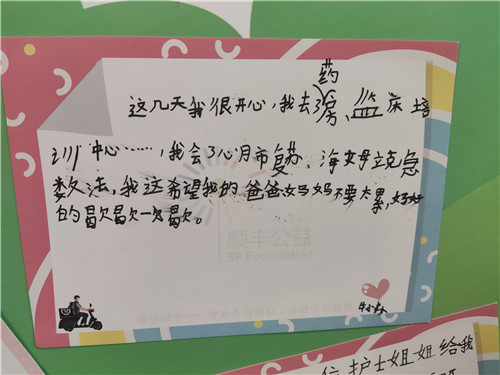 这几天我很开心,我去了药房、监床培
训中心……,我会了心肺复苏、海姆立克急
数法,我这希望我的爸爸妈妈不要太累,好好
的歇歇一歇。
顺丰公益
SF Foundation
护士姐姐给我